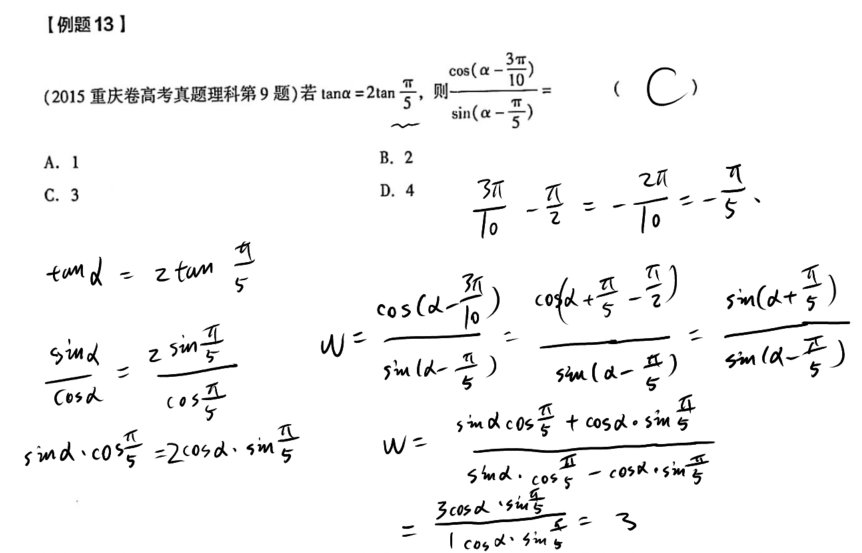 【例题13】
(2015重庆卷高考真题理科第9题)若tanα=2tan π/5，则 cos(α-3π/10)/sin(α-π/5) = ( C )
A. 1
B. 2
C. 3
D. 4
3π/10 - π/2 = -2π/10 = -π/5、
tanα = 2tan π/5
sinα/cosα = 2sin π/5 / cos π/5
sinα·cos π/5 = 2cosα·sin π/5
W = cos(α-3π/10)/sin(α-π/5) = cos(α+π/5-π/2)/sin(α-π/5) = sin(α+π/5)/sin(α-π/5)
W = (sinαcos π/5 + cosα·sin π/5)/(sinα·cos π/5 - cosα·sin π/5)
= 3cosα·sin π/5 / 1cosα·sin π/5 = 3